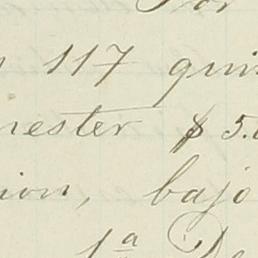 Por
117 quin
nester $ 5.
ion, bajo
1ª De